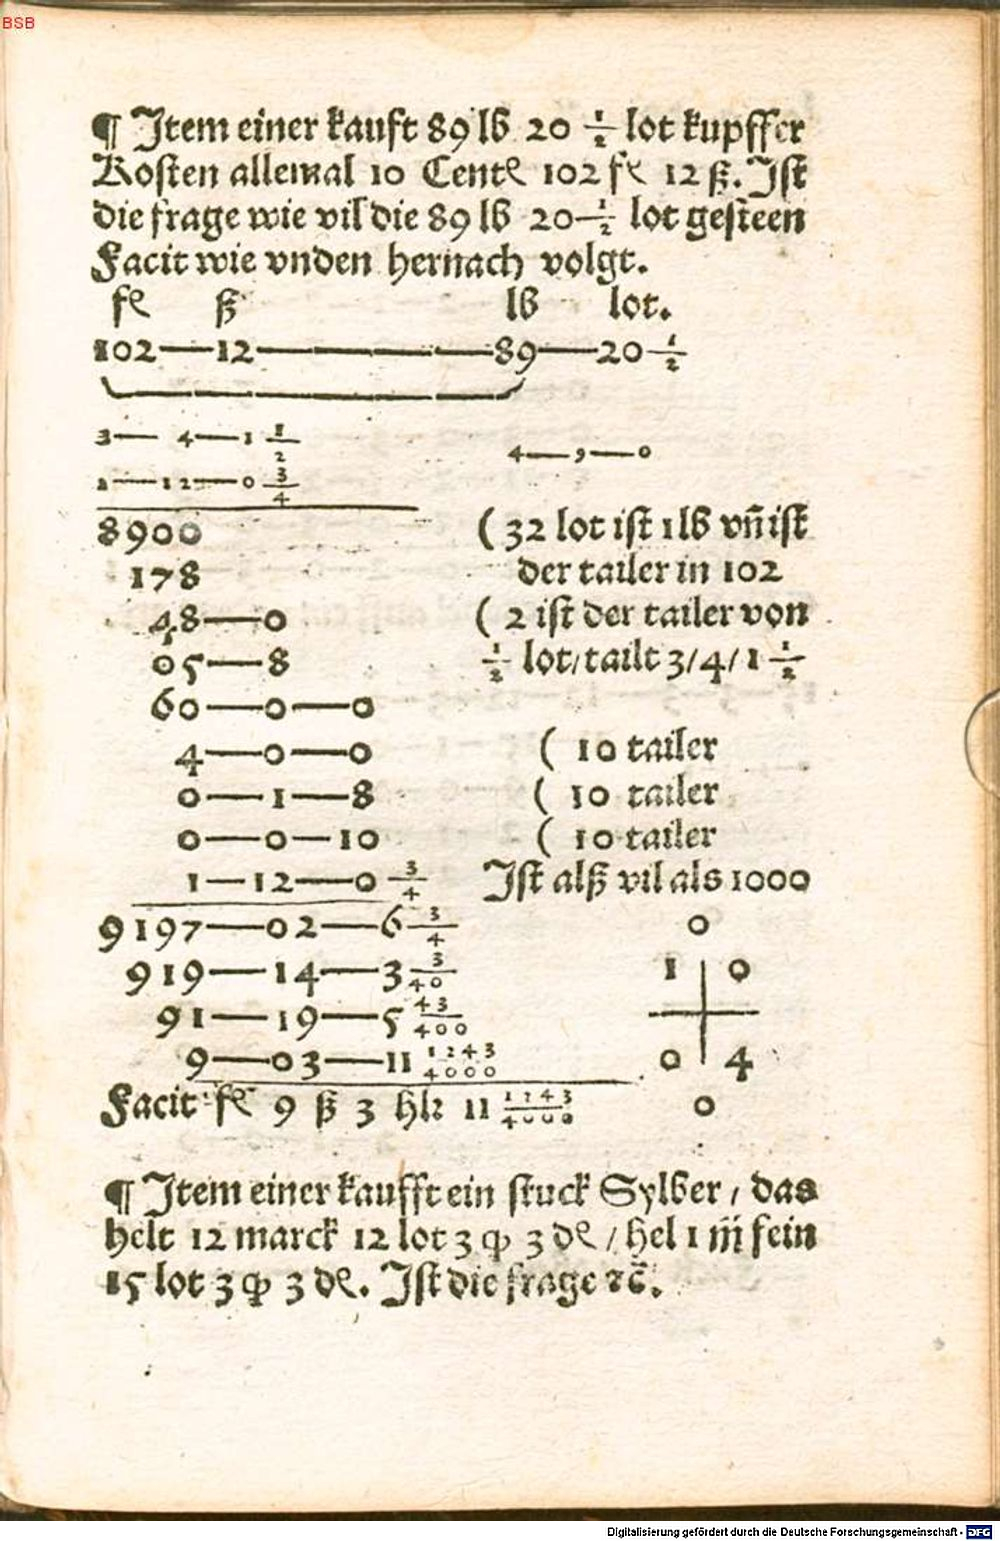 BSB
¶ Item einer kauft 89 lb 20 1/2 lot kupffer
Kosten allemal 10 Cent 102 fl 12 ß. Ist
die frage wie vil die 89 lb 20 1/2 lot gesteen
Facit wie vnden hernach volgt.
fl ß lb lot.
102—12—89—20 1/2
3— 4—1 1/2
4—,—0
1—12—0 3/4
8900 ( 32 lot ist 1 lb vn̄ ist
178 der tailer in 102
48—0 ( 2 ist der tailer von
05—8 1/2 lot/ tailt 3/4/1 1/2
60—0—0
4—0—0 ( 10 tailer
0—1—8 ( 10 tailer
0—0—10 ( 10 tailer
1—12—0 3/4 Ist alß vil als 1000
9197—02—6 3/4 0
919—14—3 3/40 1 0
91—19—5 43/400
9—03—11 1243/4000 0 4
Facit fl 9 ß 3 hlr 11 1243/4000 0
¶ Item einer kaufft ein stuck Sylber / das
helt 12 marck 12 lot 3 qp 3 de / hel 1 m̄ fein
15 lot 3 qp 3 de. Ist die frage ꝛc̄.
Digitalisierung gefördert durch die Deutsche Forschungsgemeinschaft - DFG